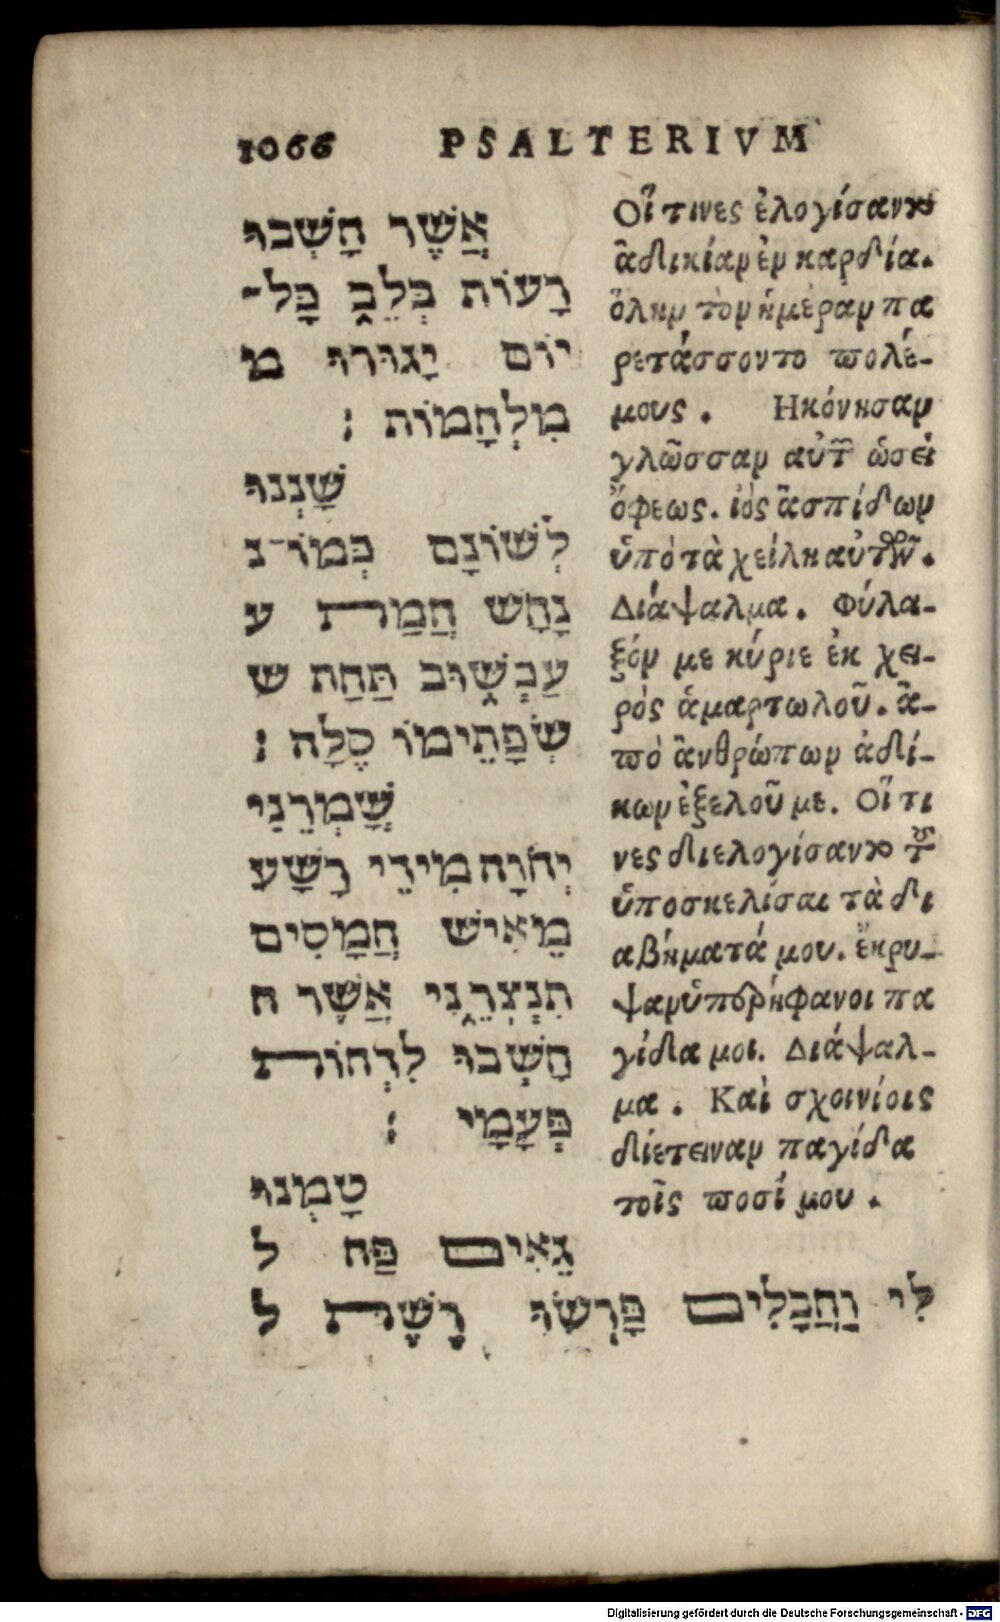 1066 PSALTERIVM
אֲשֶׁר חָשְׁבוּ
רָעוֹת בְּלֵב כָּל־
יוֹם יָגוּרוּ מ
מִלְחָמוֹת :
שָׁנְנוּ
לְשׁוֹנָם כְּמוֹ־נ
נָחָשׁ חֲמַת ע
עַכְשׁוּב תַּחַת ש
שְׂפָתֵימוֹ סֶלָה :
שָׁמְרֵנִי
יְהֹוָה מִידֵי רָשָׁע
מֵאִישׁ חֲמָסִים
תִנְצְרֵנִי אֲשֶׁר ח
חָשְׁבוּ לִדְחוֹת
פְּעָמָי :
טָמְנוּ
גֵאִים פַּח ל
לִי וַחֲבָלִים פָּרְשׂוּ רֶשֶׁת ל
Οἵ τινες ἐλογίσαντο
ἀδικίαν ἐν καρδία.
ὅλην τὸν ἡμέραν πα
ρετάσσοντο πολέ-
μους. Ηκόνησαν
γλῶσσαν αὐτ̃ ὡσεὶ
ὄφεως. ἰὸς ἀσπίδων
ὑπὸ τὰ χείλη αὐτῶν.
Διάψαλμα. Φύλα-
ξόν με κύριε ἐκ χει-
ρὸς ἁμαρτωλοῦ. ἀ-
πὸ ἀνθρώπων ἀδί-
κων ἐξελοῦ με. Οἵ τι
νες διελογίσαντο τοῦ
ὑποσκελίσαι τὰ δι
αβήματά μου. ἔκρυ-
ψαν ὑπερήφανοι πα
γίδα μοι. Διάψαλ-
μα. Καὶ σχοινίοις
διέτειναν παγίδα
τοῖς ποσί μου.
Digitalisierung gefördert durch die Deutsche Forschungsgemeinschaft - DFG